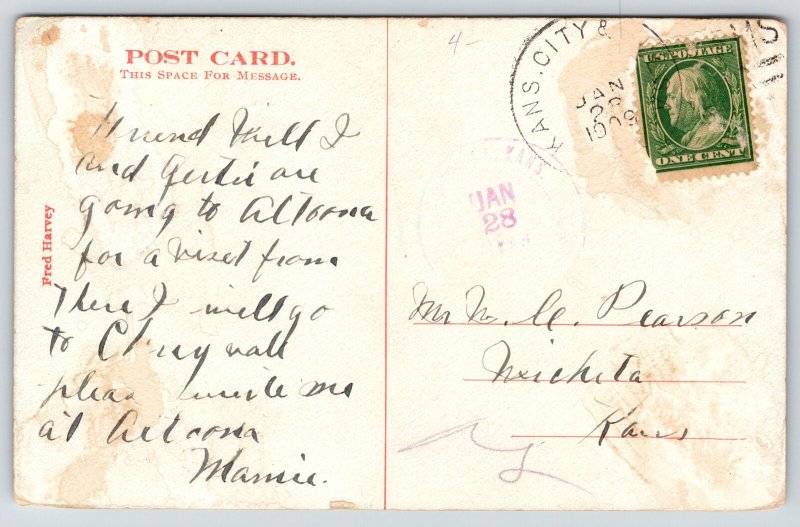 POST CARD.
THIS SPACE FOR MESSAGE.
Friend Will I
and Gertie are
going to Altoona
for a viset from
There I will go
to
pleas write me
at Altoona
Mamie.
Fred Harvey
4-
KANS. CITY &
JAN
28
1909
U.S. POSTAGE
ONE CENT
KANS.
JAN
28
Mr W. C. Pearson
Wichita
Kans